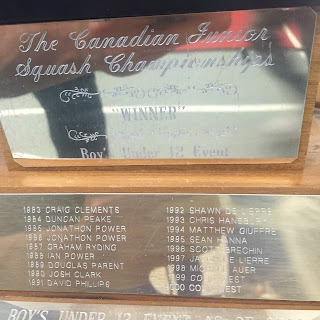 The Canadian Junior
Squash Championships
"WINNER"
Boy's Under 12 Event
1983 CRAIG CLEMENTS
1984 DUNCAN PEAKE
1985 JONATHON POWER
1986 JONATHON POWER
1987 GRAHAM RYDING
1988 IAN POWER
1989 DOUGLAS PARENT
1990 JOSH CLARK
1991 DAVID PHILLIPS
1992 SHAWN DE LIERRE
1993 CHRIS
1994 MATTHEW GIUFFRE
1995 SEAN HANNA
1996 SCOTT
1997 DE LIERRE
1998 AUER
BOY'S UNDER 12 EVENT